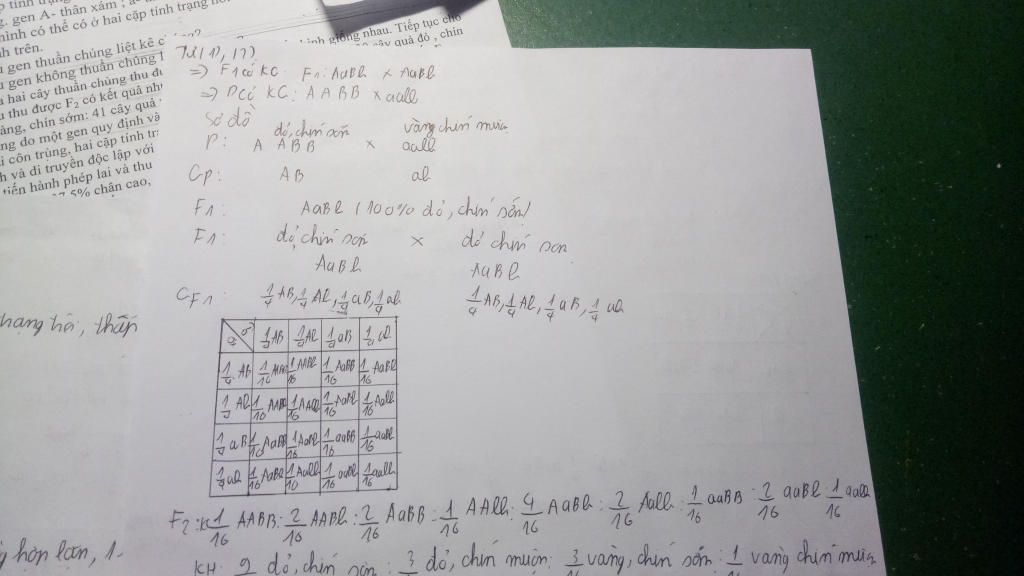 g. gen A- thân xám ; a-
hình có thể có ở hai cặp tính trạng
h trên.
i gen thuần chủng liệt kê
u gen không thuần chủng
giống nhau. Tiếp tục cho
cây quả đỏ , chín
a hai cây thuần chủng thu đ
u thu được F₂ có kết quả nh
àng, chín sớm: 41 cây quả
ng do một gen quy định và
i côn trùng, hai cặp tính tr
h và di truyền độc lập với
tiến hành phép lai và thu
5% chân cao,
Từ (1), (2)
=> F1 có KG: F1: AaBb x AaBb
=> P có KG: AABB x aabb
Sơ đồ
đỏ, chín sớm vàng chín muộn
P: A ABB x aabb
Gp: AB ab
F1: AaBb (100% đỏ, chín sớm)
F1: đỏ, chín sớm x đỏ chín sớm
AaBb AaBb
GF1: 1/4 AB, 1/4 Ab, 1/4 aB, 1/4 ab 1/4 AB, 1/4 Ab, 1/4 aB, 1/4 ab
♀ ♂ 1/4 AB 1/4 Ab 1/4 aB 1/4 ab
1/4 AB 1/16 AABB 1/16 AABb 1/16 AaBB 1/16 AaBb
1/4 Ab 1/16 AABb 1/16 AAbb 1/16 AaBb 1/16 Aabb
1/4 aB 1/16 AaBB 1/16 AaBb 1/16 aaBB 1/16 aaBb
1/4 ab 1/16 AaBb 1/16 Aabb 1/16 aaBb 1/16 aabb
F2: KG 1/16 AABB: 2/16 AABb: 2/16 AaBB: 1/16 AAbb: 4/16 AaBb: 2/16 Aabb: 1/16 aaBB: 2/16 aaBb: 1/16 aabb
KH: 9 đỏ, chín sớm: 3 đỏ, chín muộn: 3/16 vàng, chín sớm: 1 vàng chín muộn
hang hỏi, thấp
hợp lặn, 1-